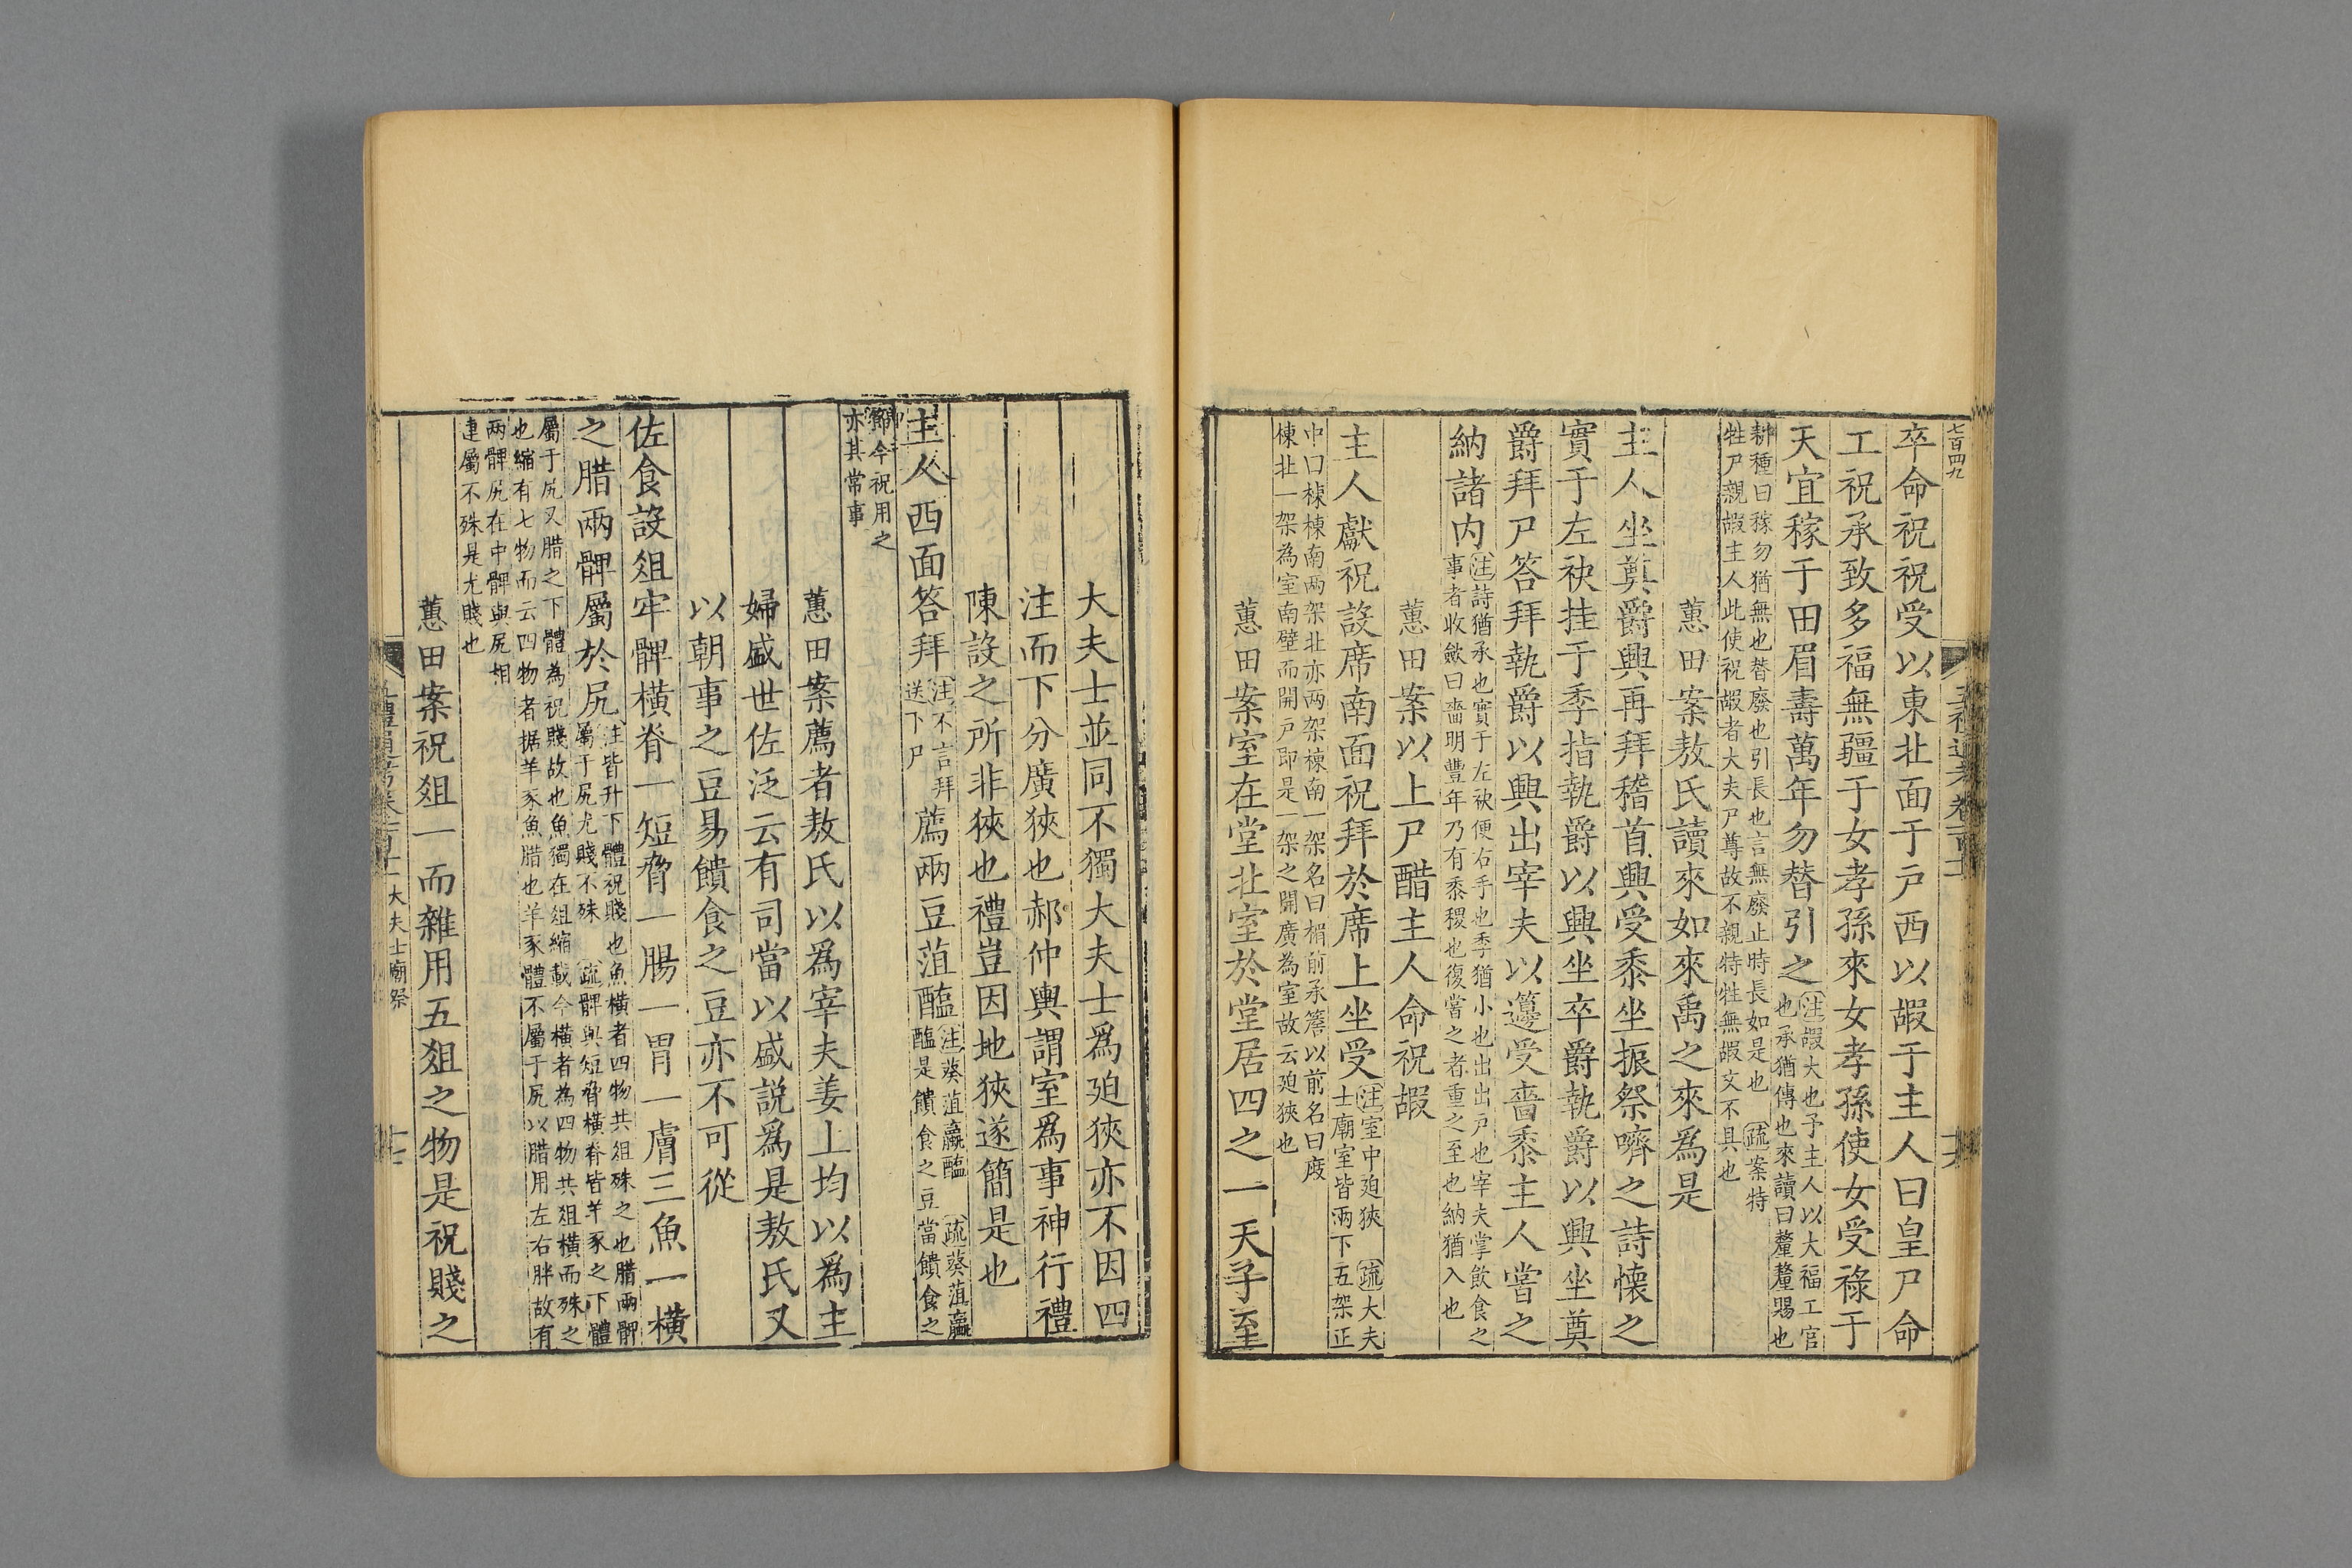 七百四九
卒命祝祝受以東北面于戶西以嘏于主人曰皇尸命
工祝承致多福無疆于女孝孫來女孝孫使女受祿于
天宜稼于田眉壽萬年勿替引之
注嘏大也予主人以大福工官
也承猶傳也來讀曰釐釐賜也
耕種曰稼勿猶無也替廢也引長也言無廢止時長如是也 疏案特
牲尸親嘏主人此使祝嘏者大夫尸尊故不親特牲無嘏文不具也
蕙田案敖氏讀來如來禹之來爲是
主人坐奠爵興再拜稽首興受黍坐振祭嚌之詩懷之
實于左袂挂于季指執爵以興坐卒爵執爵以興坐奠
爵拜尸答拜執爵以興出宰夫以籩受嗇黍主人嘗之
納諸内
注詩猶承也實于左袂便右手也季猶小也出出戶也宰夫掌飲食之
事者收斂曰嗇明豐年乃有黍稷也復嘗之者重之至也納猶入也
蕙田案以上尸醋主人命祝嘏
主人獻祝設席南面祝拜於席上坐受
注室中廹狹 疏大夫
士廟室皆兩下五架正
中曰棟棟南两架北亦两架棟南一架名曰楣前承簷以前名曰庪
棟北一架為室南壁而開戶即是一架之開廣為室故云廹狹也
蕙田案室在堂北室於堂居四之一天子至
大夫士並同不獨大夫士爲廹狹亦不因四
注而下分廣狹也郝仲輿謂室爲事神行禮
陳設之所非狹也禮豈因地狹遂簡是也
主人西面答拜
注不言拜
送下尸
薦兩豆菹醢
注葵菹蠃醢 疏葵菹蠃
醢是饋食之豆當饋食之
節今祝用之
亦其常事
蕙田案薦者敖氏以爲宰夫姜上均以爲主
婦盛世佐泛云有司當以盛説爲是敖氏又
以朝事之豆易饋食之豆亦不可從
佐食設俎牢髀橫脊一短脅一腸一胃一膚三魚一橫
之腊兩髀屬於尻
注皆升下體祝賤也魚橫者四物共俎殊之也腊兩髀
屬于尻尤賤不殊 疏髀與短脅橫脊皆羊豕之下體
屬于尻又腊之下體為祝賤故也魚獨在俎縮載今橫者為四物共俎橫而殊之
也縮有七物而云四物者据羊豕魚腊也羊豕體不屬于尻以腊用左右胖故有
两髀尻在中髀與尻相
連屬不殊是尤賤也
蕙田案祝俎一而雜用五俎之物是祝賤之
大夫士廟祭